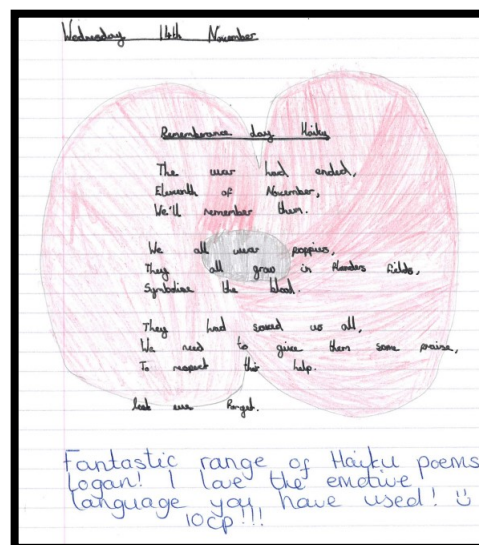 Wednesday 14th November
Remembrance day Haiku
The war had ended,
Eleventh of November,
We'll remember them.
We all wear poppies,
They all grow in Flanders Fields,
Symbolise the blood.
They had saved us all,
We need to give them some praise,
To respect their help.
Lest we Forget.
Fantastic range of Haiku poems
Logan! I love the emotive
language you have used! ☺
10cp!!!